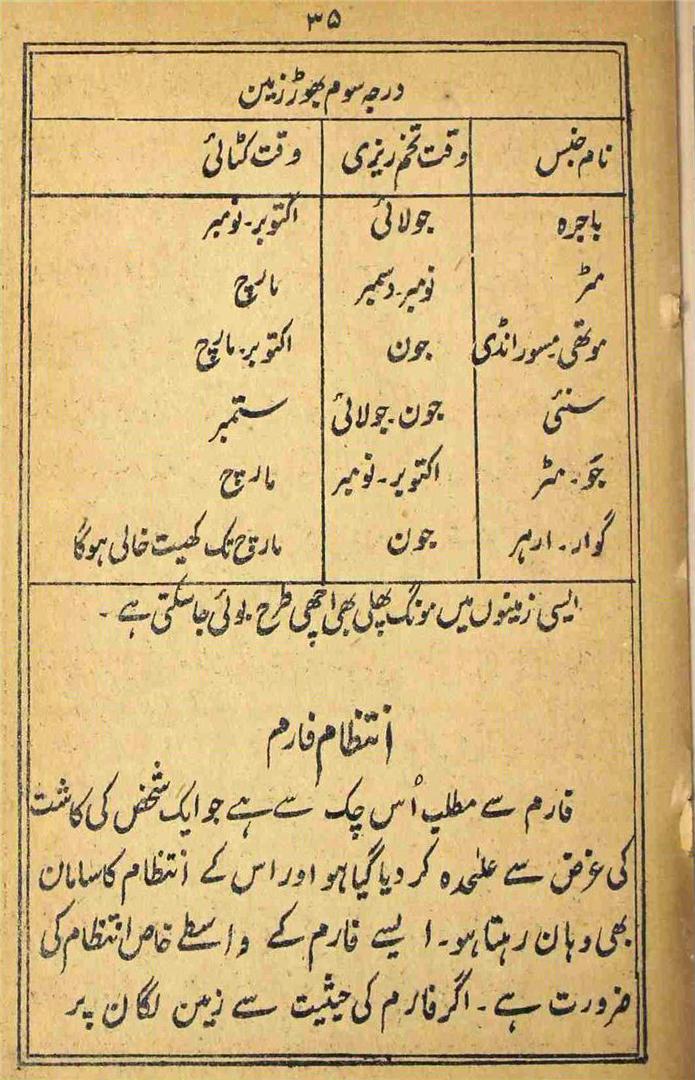 ۳۵
درجہ سوم بھوڑ زمین
نام جنس وقت تخم ریزی وقت کٹائی
باجرہ جولائی اکتوبر۔نومبر
مٹر نومبر۔دسمبر مارچ
موتھی مسور انڈی جون اکتوبر۔مارچ
سنئی جون۔جولائی ستمبر
جَو۔مٹر اکتوبر۔نومبر مارچ
گوار۔ارہر جون مارچ تک کھیت خالی ہوگا
ایسی زمینوں میں مونگ پھلی بھی اچھی طرح بوئی جاسکتی ہے۔
انتظام فارم
فارم سے مطلب اُس چک سے ہے جو ایک شخص کی کاشت
کی غرض سے علٰحدہ کر دیا گیا ہو اور اس کے انتظام کا سامان
بھی وہان رہتا ہو۔ ایسے فارم کے واسطے خاص انتظام کی
ضرورت ہے۔ اگر فارم کی حیثیت سے زمین لگان پر